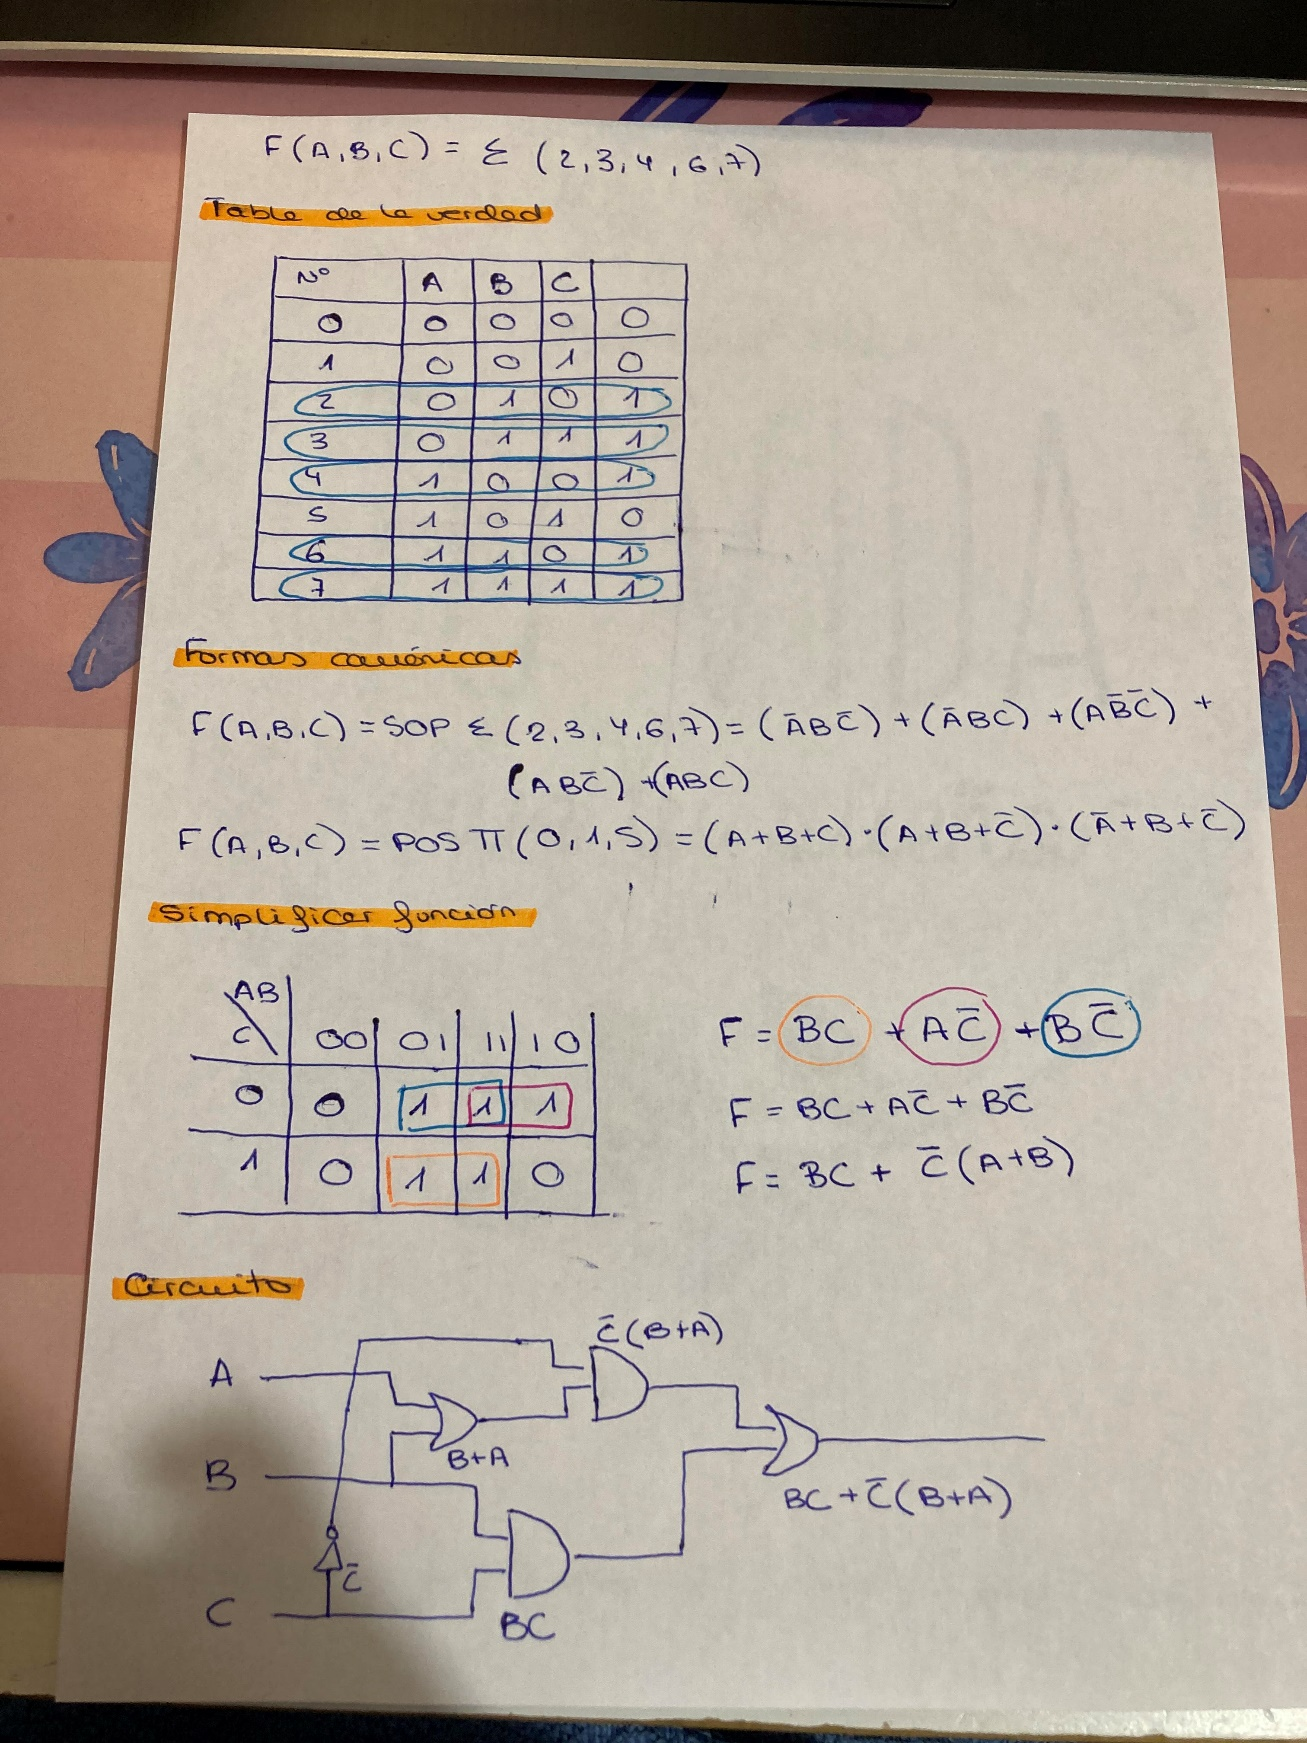 F(A,B,C) = Σ (2,3,4,6,7)
Tabla de la verdad
Nº A B C
0 0 0 0 0
1 0 0 1 0
2 0 1 0 1
3 0 1 1 1
4 1 0 0 1
5 1 0 1 0
6 1 1 0 1
7 1 1 1 1
Formas canónicas
F(A,B,C) = SOP Σ (2,3,4,6,7) = (A̅BC̅) + (A̅BC) + (AB̅C̅) +
(ABC̅) + (ABC)
F(A,B,C) = POS Π (0,1,5) = (A+B+C)·(A+B+C̅)·(A̅+B+C̅)
Simplificar función
AB
C 00 01 11 10
0 0 1 1 1
1 0 1 1 0
F = BC + AC̅ + BC̅
F = BC + AC̅ + BC̅
F = BC + C̅(A+B)
Circuito
C̅(B+A)
A
B+A
B
BC + C̅(B+A)
C̅
C
BC